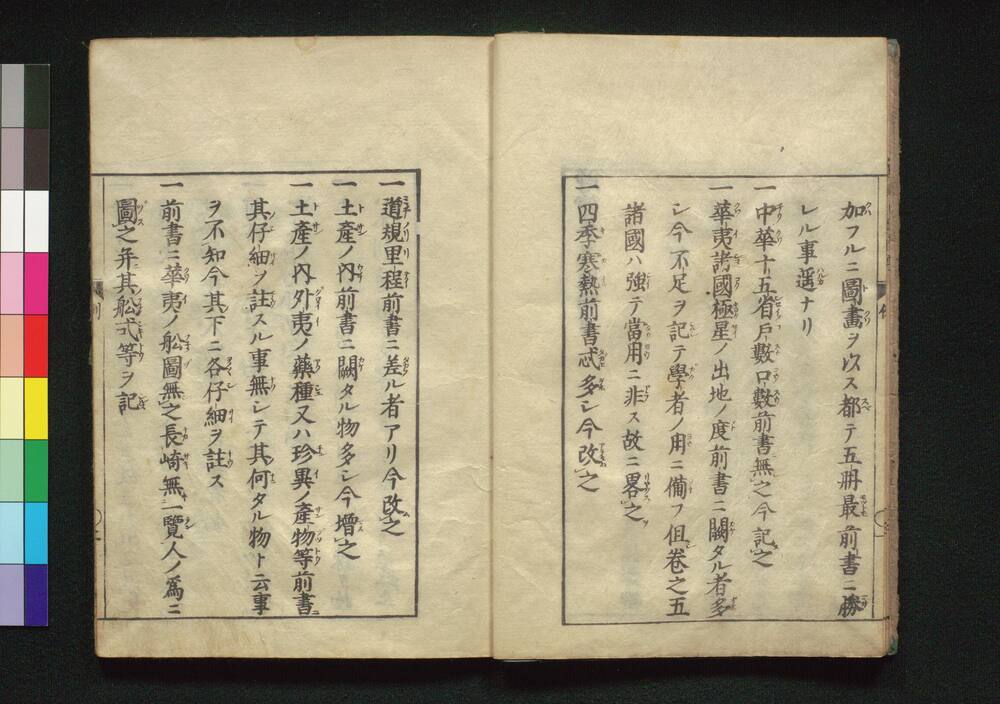 加フルニ圖畵ヲ以ス都テ五册最前書ニ勝
レル事遥ナリ
一中華十五省戸數口數前書無之今記之
一華夷諸國極星ノ出地ノ度前書ニ闕タル者多
シ今不足ヲ記テ學者ノ用ニ備フ但卷之五
諸國ハ強テ當用ニ非ス故ニ畧之
一四季寒熱前書忒多シ今改之
一道規里程前書ニ差ル者アリ今改之
一土產ノ内前書ニ闕タル物多シ今增之
一土產ノ内外夷ノ藥種又ハ珍異ノ產物等前書ニ
其仔細ヲ註スル事無シテ其何タル物ト云事
ヲ不知今其下ニ各仔細ヲ註ス
一前書ニ華夷ノ舩圖無之長崎無一覽人ノ爲ニ
圖之并其舩式等ヲ記